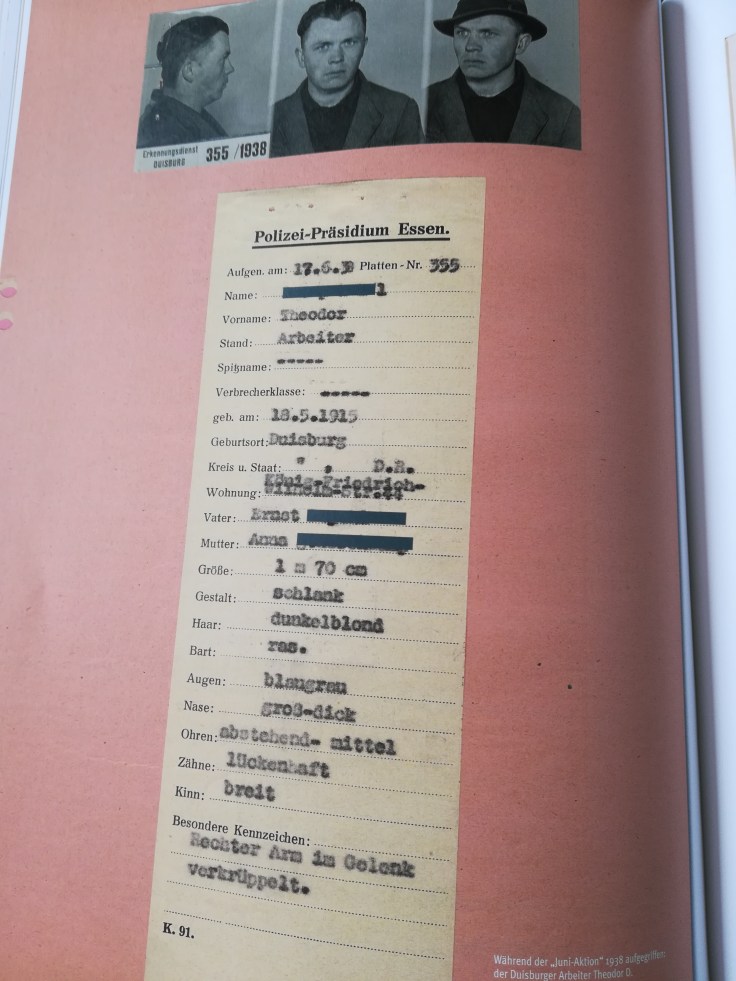 Erkennungsdienst
DUISBURG
355/1938
Polizei-Präsidium Essen.
Aufgen. am: 17.6.38 Platten-Nr. 355
Name: l
Vorname: Theodor
Stand: Arbeiter
Spitzname: -----
Verbrecherklasse: -----
geb. am: 18.5.1915
Geburtsort: Duisburg
Kreis u. Staat: " , D.R.
Wohnung: König-Friedrich-
Wilhelm-Str.44
Vater: Ernst
Mutter: Anna
Größe: 1 m 70 cm
Gestalt: schlank
Haar: dunkelblond
Bart: ras.
Augen: blaugrau
Nase: groß-dick
Ohren: abstehend- mittel
Zähne: lückenhaft
Kinn: breit
Besondere Kennzeichen:
Rechter Arm im Gelenk
verkrüppelt.
K. 91.
Während der „Juni-Aktion" 1938 aufgegriffen:
der Duisburger Arbeiter Theodor D.